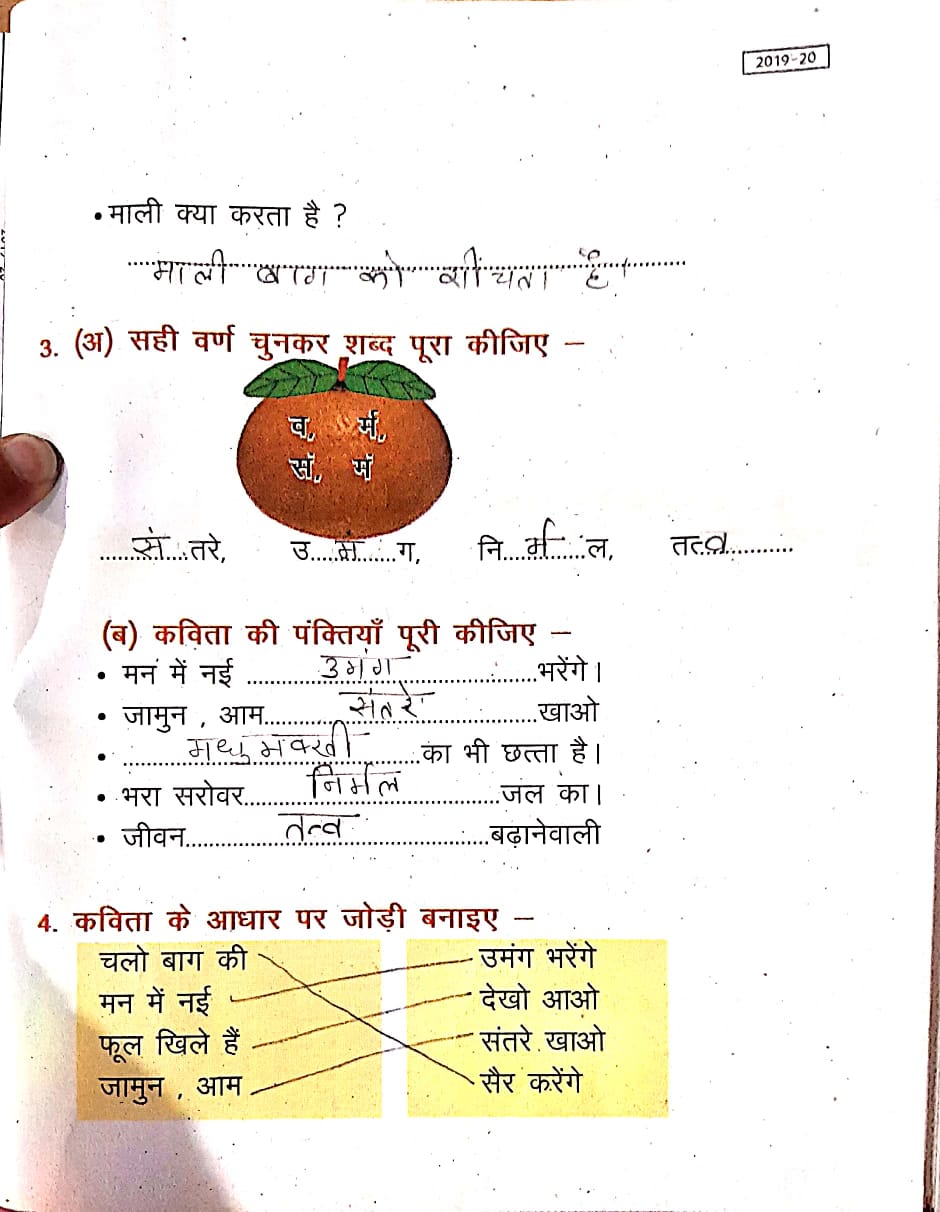 2019-20
• माली क्या करता है ?
माली बाग को शींचता है।
3. (अ) सही वर्ण चुनकर शब्द पूरा कीजिए –
व, र्म,
सं, मं
......सं....तरे, उ....मं.....ग, नि....र्म.....ल, तत्व...........
(ब) कविता की पंक्तियाँ पूरी कीजिए –
• मन में नई ........उमंग..............भरेंगे।
• जामुन , आम.........संतरे............खाओ
• ........मधुमक्खी........का भी छत्ता है।
• भरा सरोवर........निर्मल............जल का।
• जीवन..........तत्व..............बढ़ानेवाली
4. कविता के आधार पर जोड़ी बनाइए –
चलो बाग की उमंग भरेंगे
मन में नई देखो आओ
फूल खिले हैं संतरे खाओ
जामुन , आम सैर करेंगे